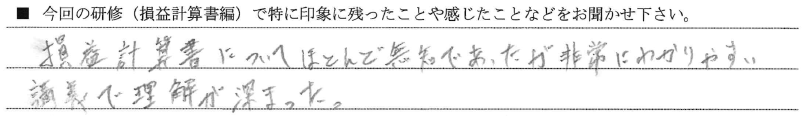 ■ 今回の研修（損益計算書編）で特に印象に残ったことや感じたことなどをお聞かせ下さい。
損益計算書についてほとんど無知であったが非常にわかりやすい
講義で理解が深まった。